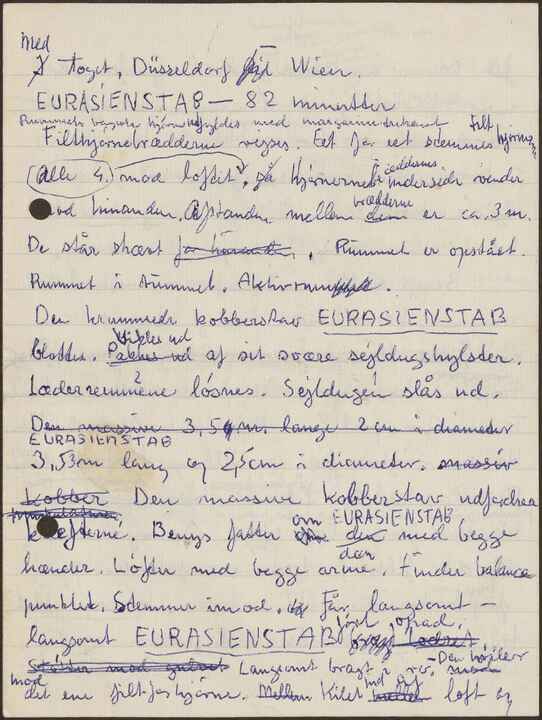 Med
I toget, Düsseldorf Wien.
EURASIENSTAB — 82 minutter
Rummets hjørner fyldes med margarine
Filthjørnebrædderne rejses. Eet for eet stemmes filthjørne
(Alle 4.) mod loftet, på hjørnerne bræddernes underside vender
mod hinanden. Afstanden mellem dem brædderne er ca. 3 m.
De står skæst. Rummet er opstået.
Rummet i rummet. Aktivrum.
Den krummede kobberstav EURASIENSTAB
blottes. Pakkes ud Vikles ud af sit svære sejldugshylster.
Læderremmene løsnes. Sejldugen slås ud.
Den massive 3,5 m. lange 2 cm i diameter
EURASIENSTAB
3,53m lang og 2,5cm i diameter. massiv
Kobber Den massive kobberstav udfordrer
kræfterne. Beuys fatter om EURASIENSTAB den med begge
hænder. Løfter den med begge arme. Finder balance
punktet. Stemmer imod. Får langsomt —
langsomt EURASIENSTAB ført opad.
Langsomt bragt i ro. - Den højler
mod det ene filtfashjørne. Mellem Kilet ind af loft og